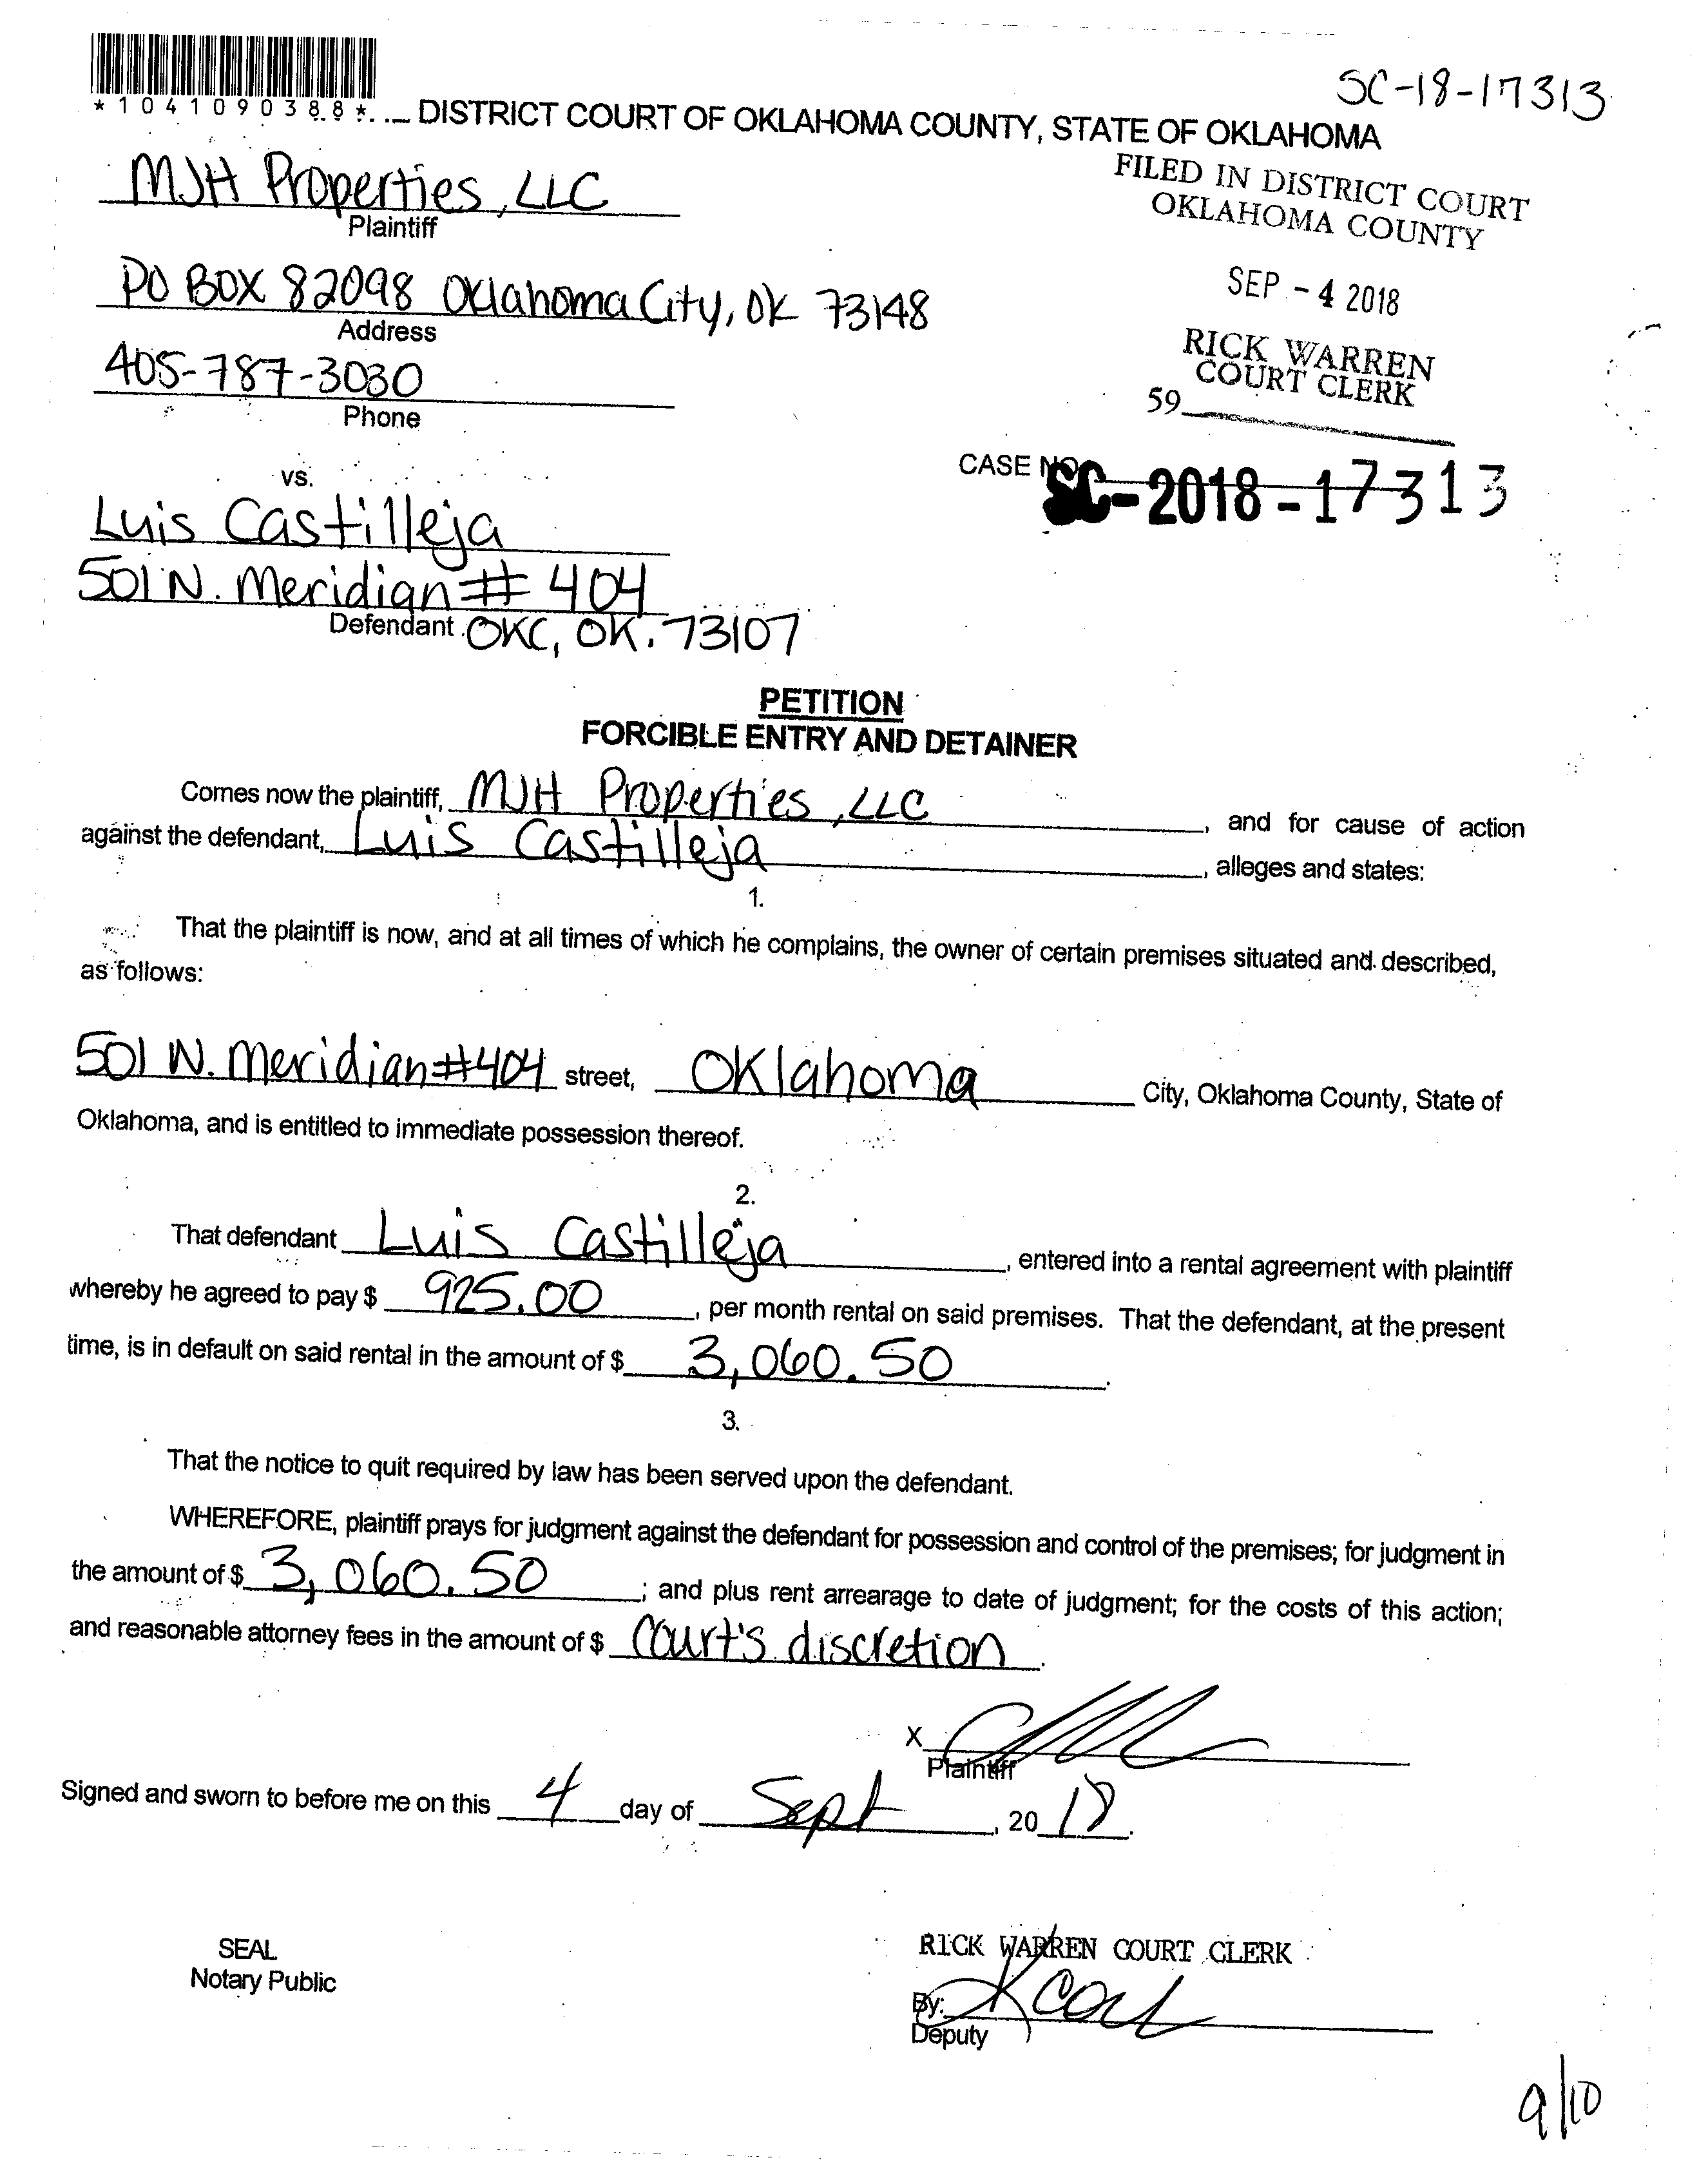 SC-18-17313
*1041090388*
DISTRICT COURT OF OKLAHOMA COUNTY, STATE OF OKLAHOMA
MJH Properties, LLC
Plaintiff
FILED IN DISTRICT COURT
OKLAHOMA COUNTY
PO BOX 82098 Oklahoma City, OK 73148
Address
SEP - 4 2018
405-787-3030
Phone
RICK WARREN
COURT CLERK
59
vs.
CASE NO.
SC-2018-17313
Luis Castilleja
501 N. Meridian # 404
Defendant OKC, OK. 73107
PETITION
FORCIBLE ENTRY AND DETAINER
Comes now the plaintiff, MJH Properties, LLC, and for cause of action
against the defendant, Luis Castilleja, alleges and states:
1.
That the plaintiff is now, and at all times of which he complains, the owner of certain premises situated and described,
as follows:
501 N. Meridian #404 street, Oklahoma City, Oklahoma County, State of
Oklahoma, and is entitled to immediate possession thereof.
2.
That defendant Luis Castilleja, entered into a rental agreement with plaintiff
whereby he agreed to pay $ 925.00, per month rental on said premises. That the defendant, at the present
time, is in default on said rental in the amount of $ 3,060.50.
3.
That the notice to quit required by law has been served upon the defendant.
WHEREFORE, plaintiff prays for judgment against the defendant for possession and control of the premises; for judgment in
the amount of $ 3,060.50; and plus rent arrearage to date of judgment; for the costs of this action;
and reasonable attorney fees in the amount of $ Court's discretion.
X
Plaintiff
Signed and sworn to before me on this 4 day of Sept, 20 18.
SEAL
Notary Public
RICK WARREN COURT CLERK
By:
Deputy
9/10